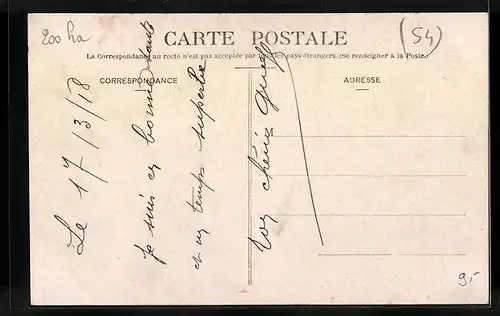 200 ha
(54)
CARTE POSTALE
La Correspondance au recto n'est pas acceptée par les pays étrangers. (Se renseigner à la Poste.)
CORRESPONDANCE
ADRESSE
Le 17/3/18
Je suis en bonne santé
et un temps superbe
ton chéri
9.-